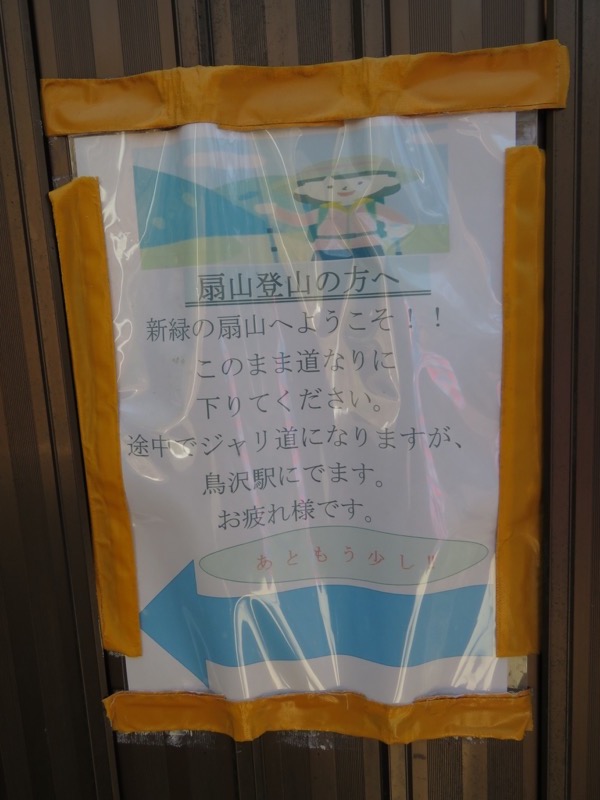 扇山登山の方へ
新緑の扇山へようこそ！！
このまま道なりに
下りてください。
途中でジャリ道になりますが、
鳥沢駅にでます。
お疲れ様です。
あともう少し!!